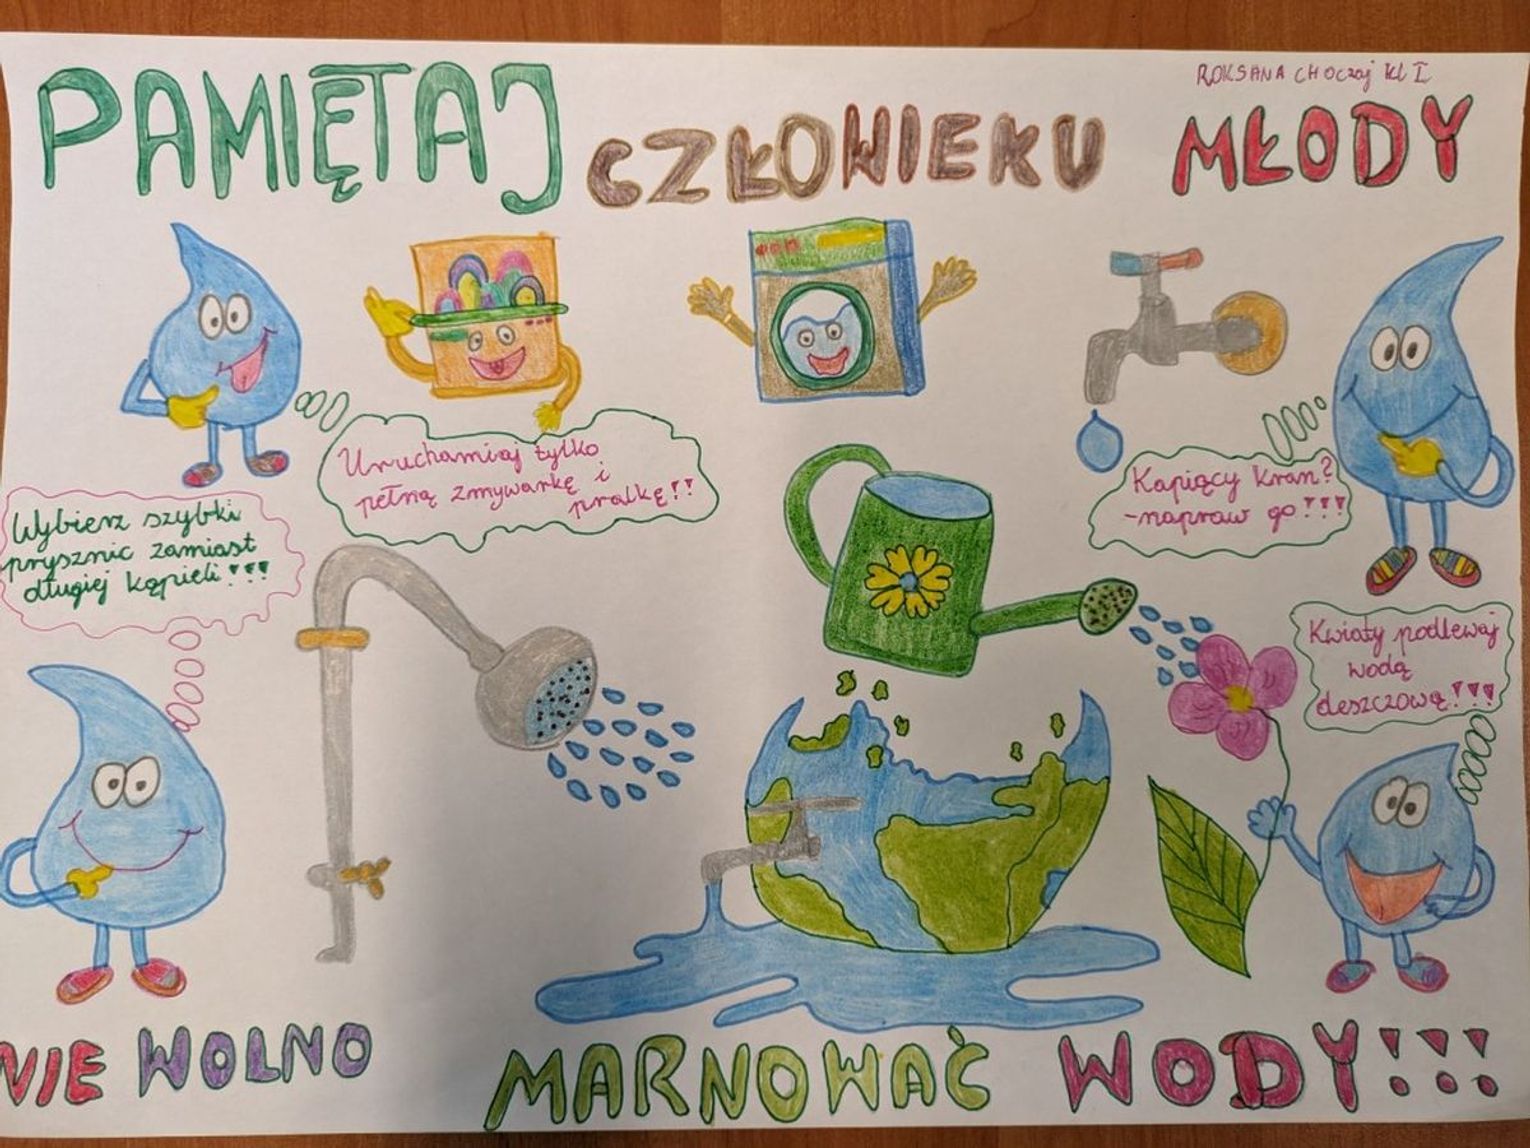 ROKSANA CHOCZAJ kl I
PAMIĘTAJ CZŁOWIEKU MŁODY
Uruchamiaj tylko
pełną zmywarkę i
pralkę!!
Kapiący kran?
-napraw go!!!
Wybierz szybki
prysznic zamiast
długiej kąpieli!!!
Kwiaty podlewaj
wodą
deszczową!!!
NIE WOLNO MARNOWAĆ WODY!!!